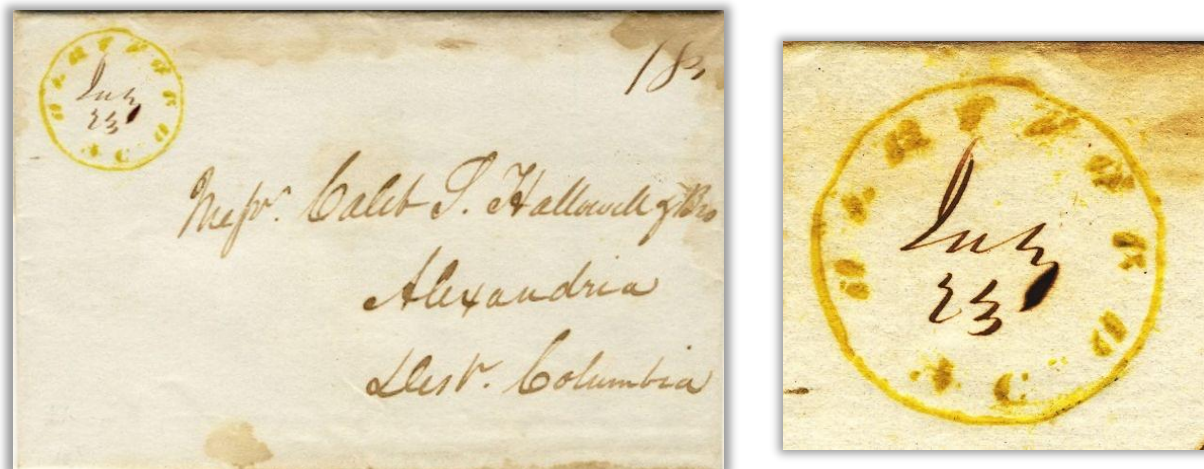 July
23
18¾
Messrs. Caleb S. Hallowell & Bro
Alexandria
Dist. Columbia
July
23